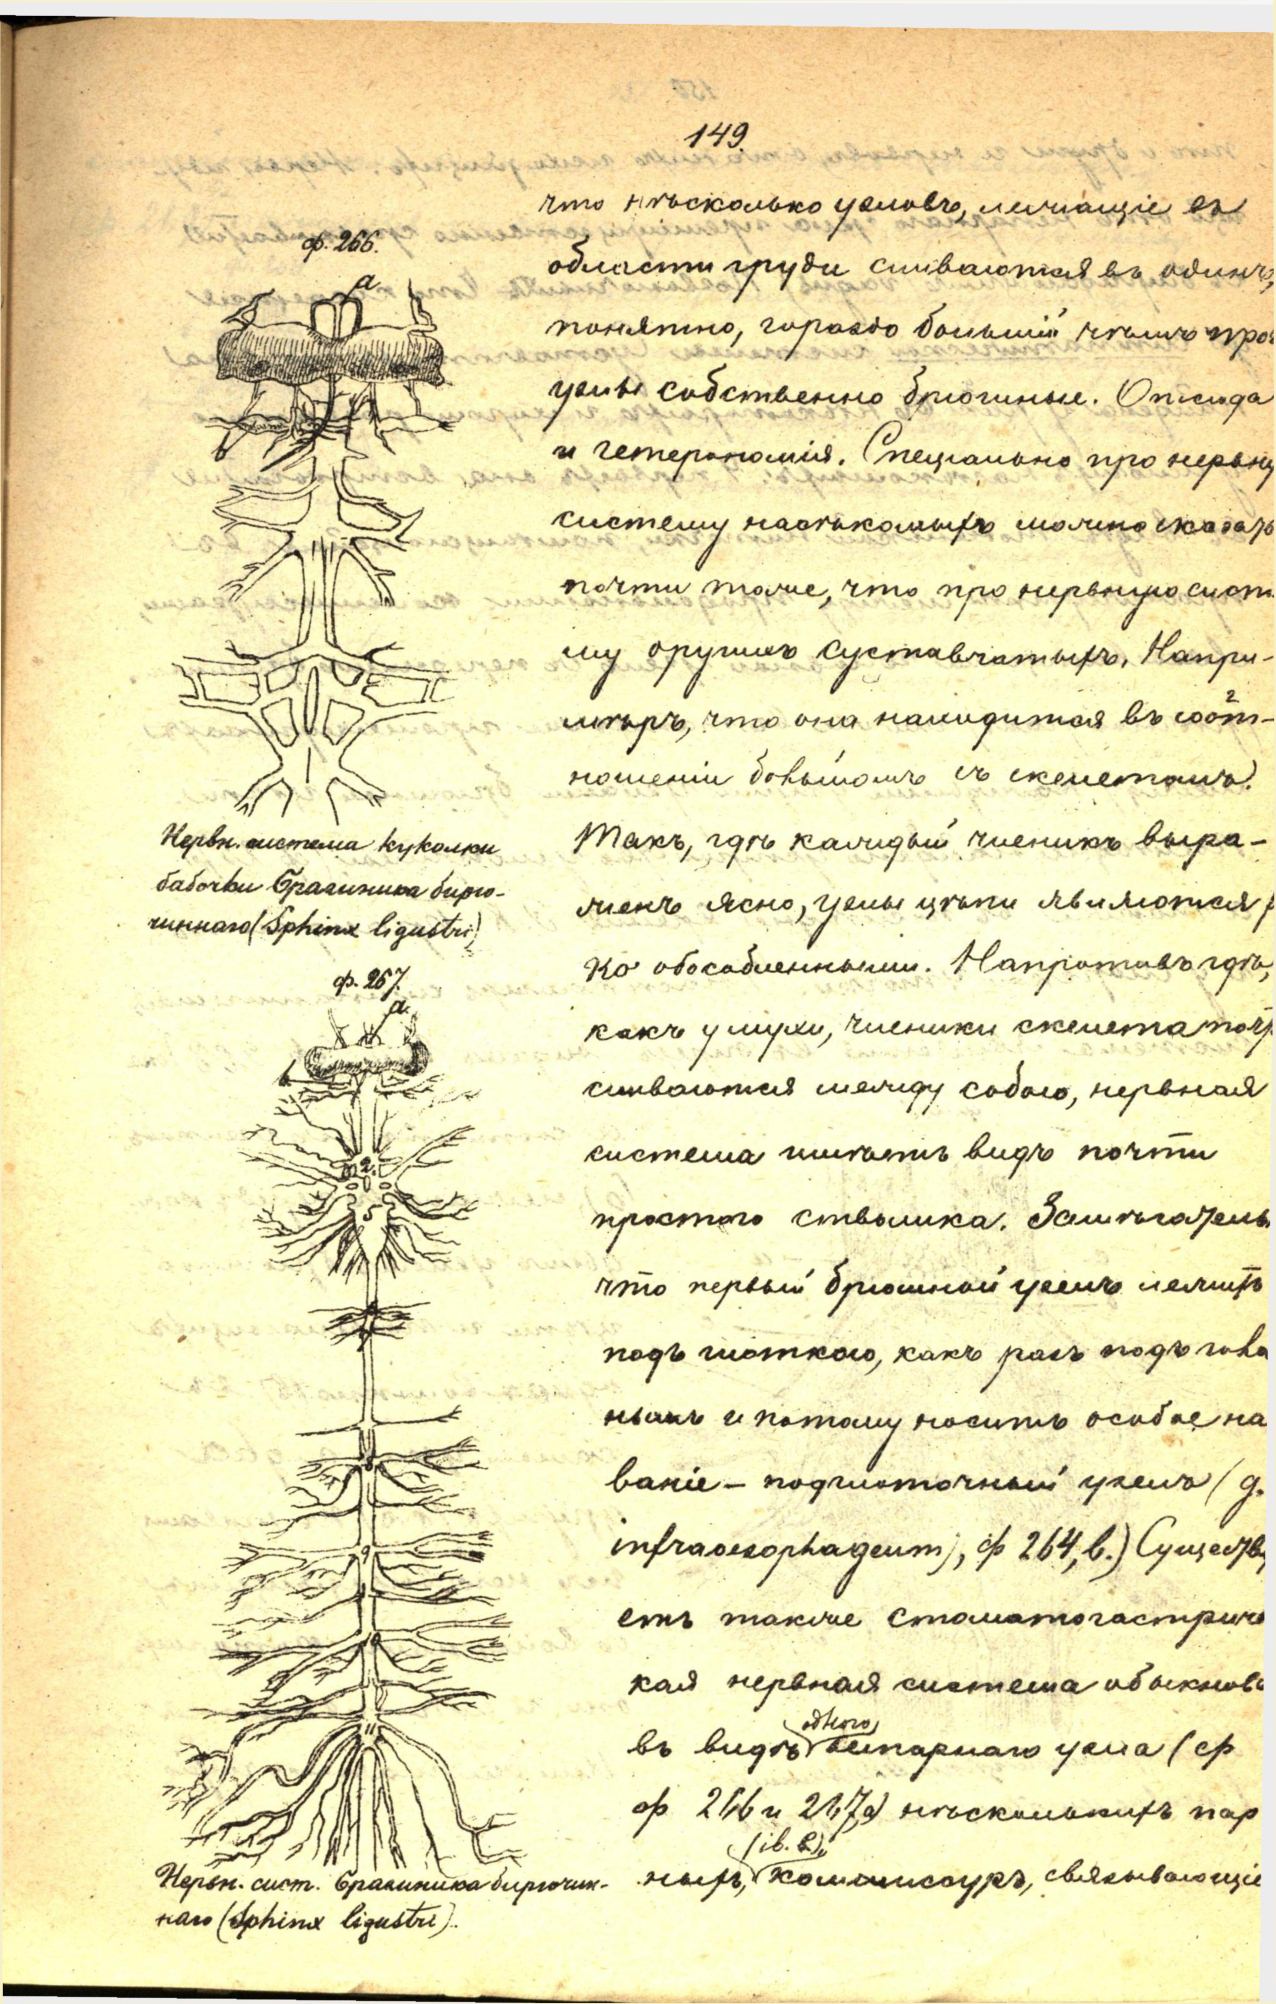 149
что нѣсколько узловъ, лежащіе въ
области груди сливаются въ одинъ,
понятно, гораздо большій чѣмъ проч
узлы собственно брюшные. Отсюда
и гетерономія. Спеціально про нервну
систему насѣкомыхъ можно сказать
почти тоже, что про нервную систе
му другихъ суставчатыхъ. Напри-
мѣръ, что она находится въ соот-
ношеніи большомъ съ скелетомъ.
Такъ, гдѣ каждый членикъ выра-
женъ ясно, узлы цѣпи являются р
ко обособленными. Напротивъ гдѣ,
какъ у мухи, членики скелета почт
сливаются между собою, нервная
система имѣетъ видъ почти
простого стволика. Замѣчатель
что первый брюшной узелъ лежитъ
подъ глоткою, какъ разъ подъ голов
нымъ и потому носитъ особое на
ваніе – подглоточный узелъ (g.
infraoesophageum), ф 264, b.) Существу
етъ также стоматогастриче
кая нервная система обыкнове
въ видѣ одного непарнаго узла (ср
ф 266 и 267,a) нѣсколькихъ пар
ныхъ, (ib. b), коммисуръ, связывающіе
ф. 266.
a
b
Нервн. система куколки
бабочки Бражника бирю-
чиннаго (Sphinx ligustri)
ф. 267.
a.
b
2.
5
8
9
10
11
Нервн. сист. Бражника бирючин-
наго (Sphinx ligustri).